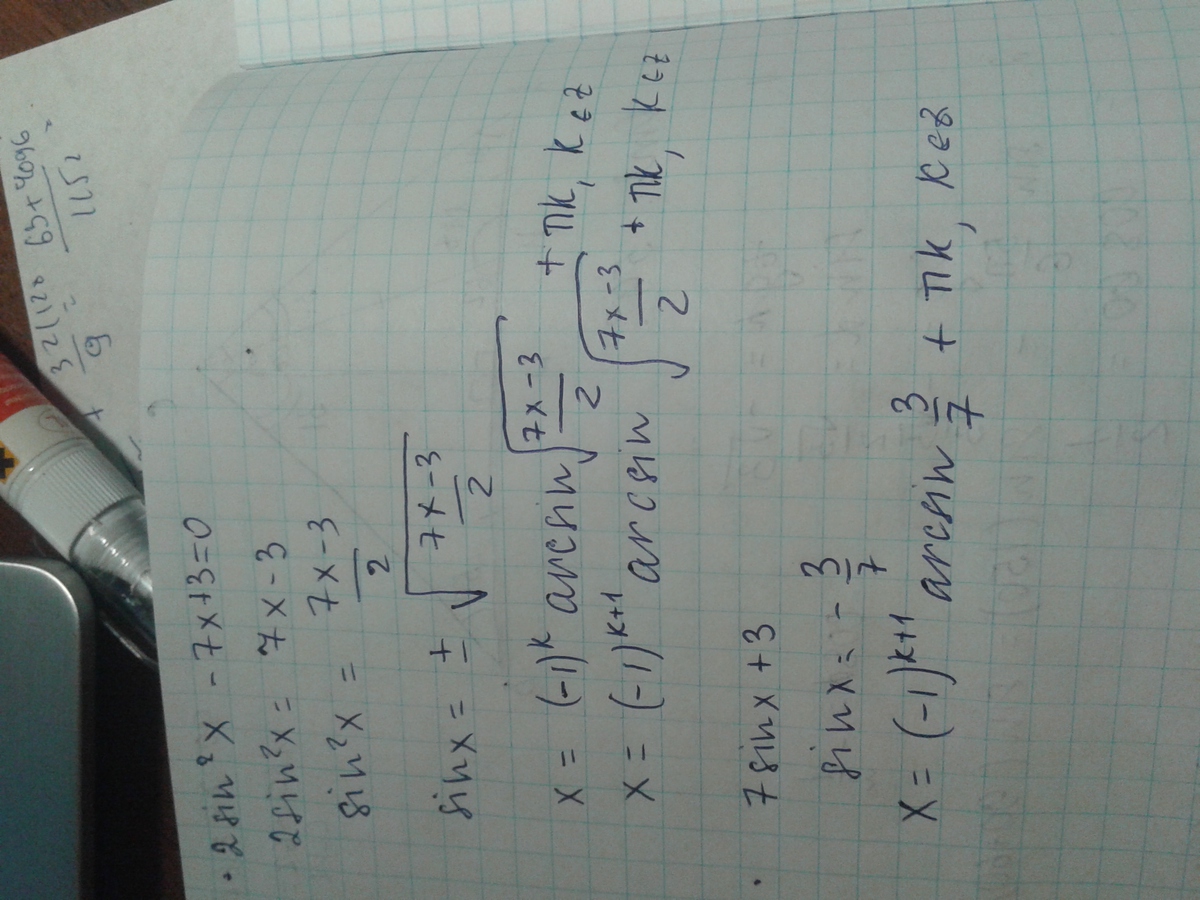 · 2sin²x - 7x+3=0
2sin²x = 7x-3
sin²x = 7x-3/2
sinx = ± √(7x-3/2)
x = (-1)^k arcsin √(7x-3/2) + πk, k∈z
x = (-1)^(k+1) arcsin √(7x-3/2) + πk, k∈z
· 7sinx+3
sinx = -3/7
x = (-1)^(k+1) arcsin 3/7 + πk, k∈z